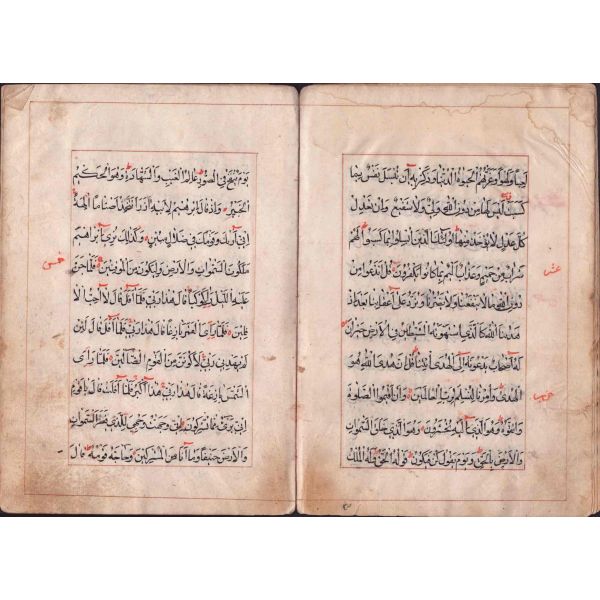 لَعِبًا وَلَهْوًا وَغَرَّتْهُمُ الْحَيٰوةُ الدُّنْيَا وَذَكِّرْ بِهِ أَنْ تُبْسَلَ نَفْسٌ بِمَا
كَسَبَتْ لَيْسَ لَهَا مِنْ دُونِ اللهِ وَلِيٌّ وَلَا شَفِيعٌ وَإِنْ تَعْدِلْ
كُلَّ عَدْلٍ لَا يُؤْخَذْ مِنْهَا أُولٰئِكَ الَّذِينَ أُبْسِلُوا بِمَا كَسَبُوا لَهُمْ
شَرَابٌ مِنْ حَمِيمٍ وَعَذَابٌ أَلِيمٌ بِمَا كَانُوا يَكْفُرُونَ قُلْ أَنَدْعُوا مِنْ
عشر
دُونِ اللهِ مَا لَا يَنْفَعُنَا وَلَا يَضُرُّنَا وَنُرَدُّ عَلَى أَعْقَابِنَا بَعْدَ إِذْ
هَدَيْنَا اللهُ كَالَّذِي اسْتَهْوَتْهُ الشَّيَاطِينُ فِي الْأَرْضِ حَيْرَانَ
لَهُ أَصْحَابٌ يَدْعُونَهُ إِلَى الْهُدَى ائْتِنَا قُلْ إِنَّ هُدَى اللهِ هُوَ
الْهُدَى وَأُمِرْنَا لِنُسْلِمَ لِرَبِّ الْعَالَمِينَ وَأَنْ أَقِيمُوا الصَّلٰوةَ
وَاتَّقُوهُ وَهُوَ الَّذِي إِلَيْهِ تُحْشَرُونَ وَهُوَ الَّذِي خَلَقَ السَّمٰوَاتِ
وَالْأَرْضَ بِالْحَقِّ وَيَوْمَ يَقُولُ كُنْ فَيَكُونُ قَوْلُهُ الْحَقُّ وَلَهُ الْمُلْكُ
يَوْمَ يُنْفَخُ فِي الصُّورِ عَالِمُ الْغَيْبِ وَالشَّهَادَةِ وَهُوَ الْحَكِيمُ
الْخَبِيرُ وَإِذْ قَالَ إِبْرٰهِيمُ لِأَبِيهِ آزَرَ أَتَتَّخِذُ أَصْنَامًا آلِهَةً
إِنِّي أَرٰيكَ وَقَوْمَكَ فِي ضَلَالٍ مُبِينٍ وَكَذٰلِكَ نُرِي إِبْرٰهِيمَ
مَلَكُوتَ السَّمٰوَاتِ وَالْأَرْضِ وَلِيَكُونَ مِنَ الْمُوقِنِينَ فَلَمَّا جَنَّ
خمس
عَلَيْهِ اللَّيْلُ رَأَى كَوْكَبًا قَالَ هٰذَا رَبِّي فَلَمَّا أَفَلَ قَالَ لَا أُحِبُّ الْآ
فِلِينَ فَلَمَّا رَأَى الْقَمَرَ بَازِغًا قَالَ هٰذَا رَبِّي فَلَمَّا أَفَلَ قَالَ لَئِنْ
لَمْ يَهْدِنِي رَبِّي لَأَكُونَنَّ مِنَ الْقَوْمِ الضَّالِّينَ فَلَمَّا رَأَى
الشَّمْسَ بَازِغَةً قَالَ هٰذَا رَبِّي هٰذَا أَكْبَرُ فَلَمَّا أَفَلَتْ قَالَ يَا قَوْمِ
إِنِّي بَرِيءٌ مِمَّا تُشْرِكُونَ إِنِّي وَجَّهْتُ وَجْهِيَ لِلَّذِي فَطَرَ السَّمٰوَاتِ
وَالْأَرْضَ حَنِيفًا وَمَا أَنَا مِنَ الْمُشْرِكِينَ وَحَاجَّهُ قَوْمُهُ قَالَ